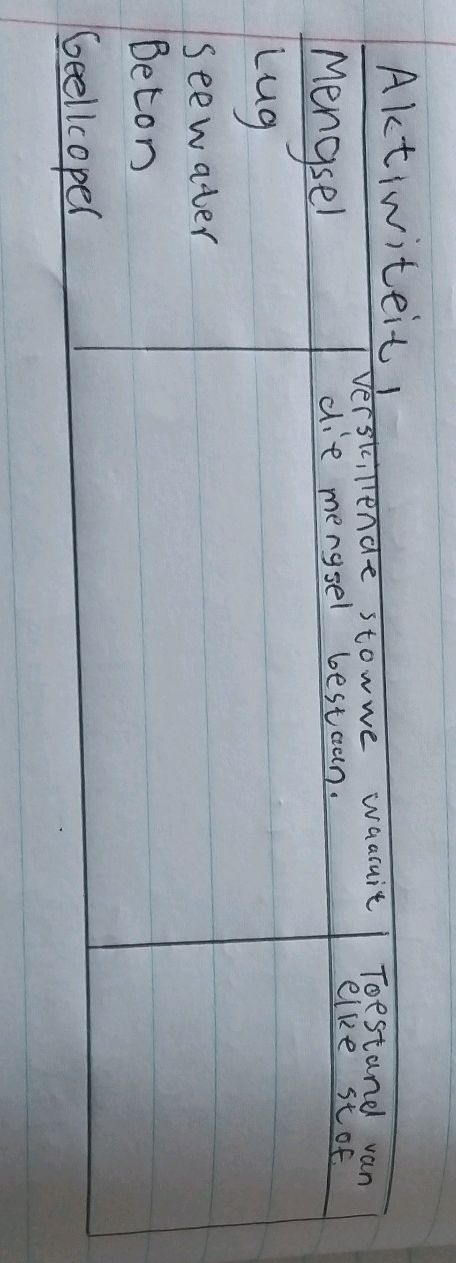 Aktiwiteit 1
Mengsel
Verskillende stowwe waaruit
die mengsel bestaan.
Toestand van
elke stof.
Lug
Seewater
Beton
Geelkoper